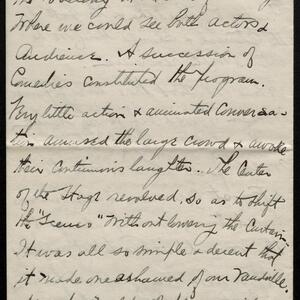 Where we could see both actors &
Audience. A succession of
Comedies constituted the Program.
Very little action & animated Conversa-
tion amused the large crowd & awoke
their continuous laughter. The Center
of the Stage revolved, so as to shift
the "Scenes" without lowering the Curtain.
It was all so simple & decent that
it made one ashamed of our Vaudeville.